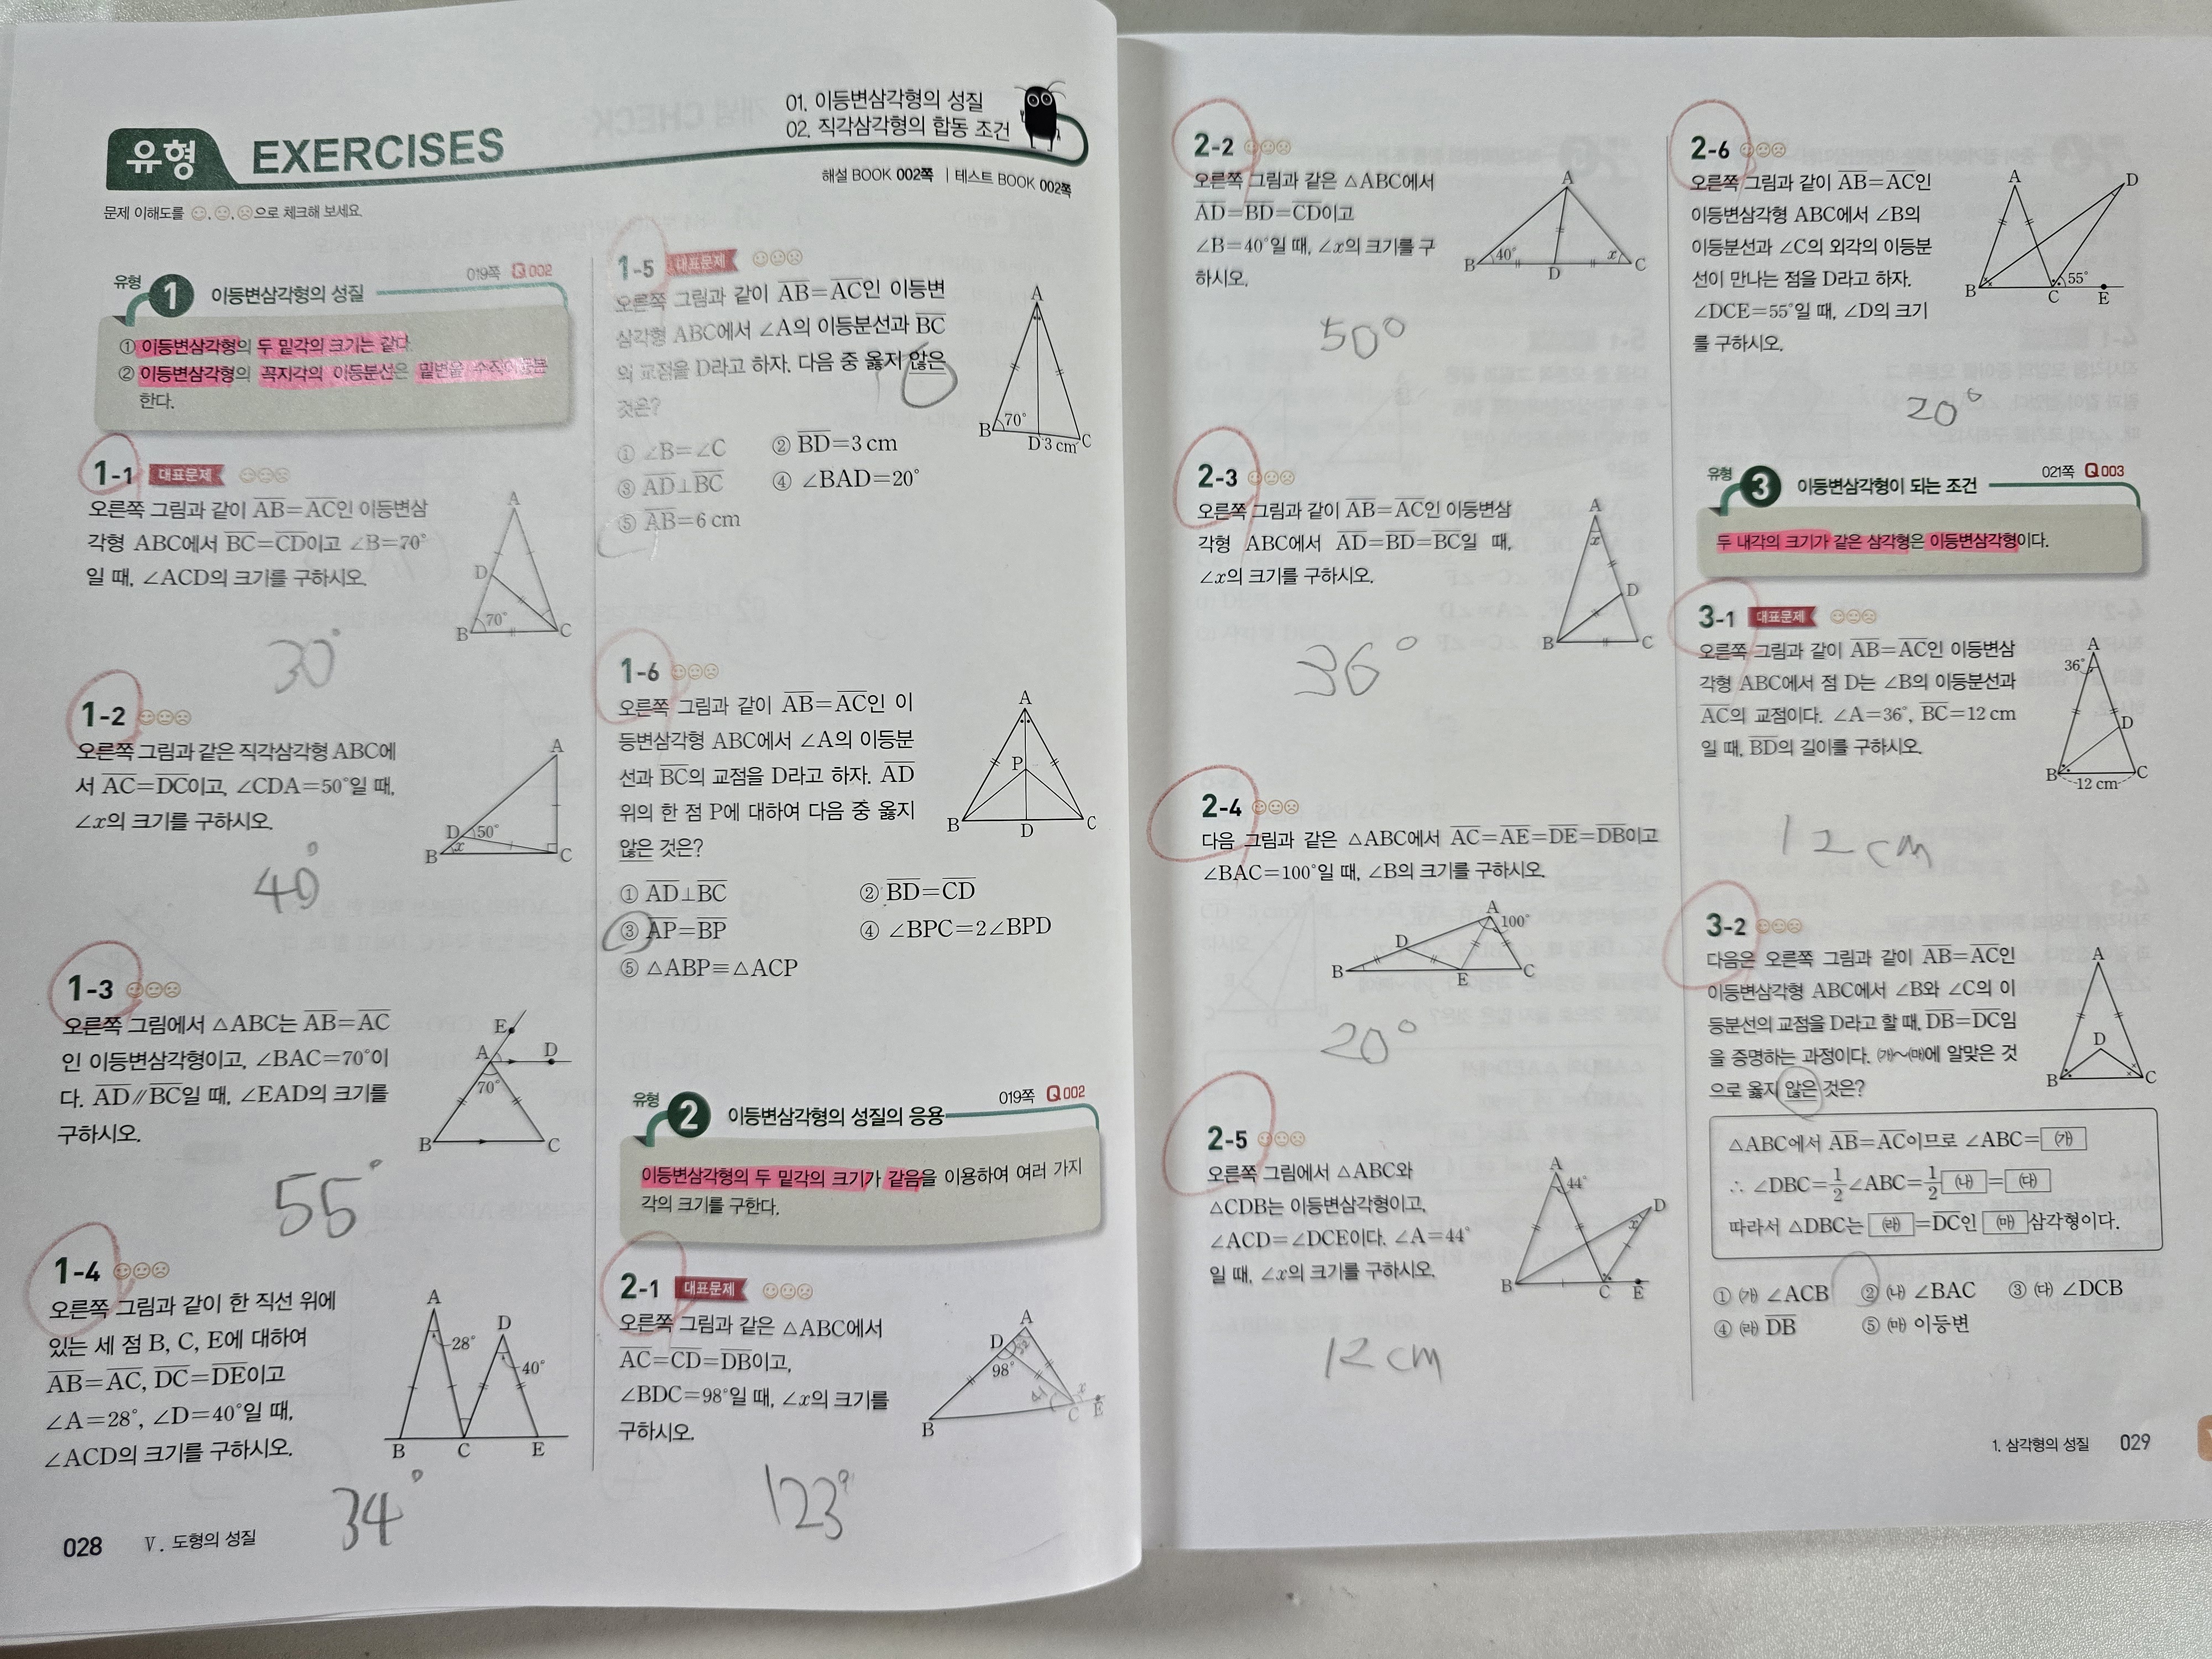 01. 이등변삼각형의 성질
02. 직각삼각형의 합동 조건
유형 EXERCISES
해설 BOOK 002쪽 | 테스트 BOOK 002쪽
문제 이해도를 으로 체크해 보세요.
유형 1 이등변삼각형의 성질 019쪽 Q 002
① 이등변삼각형의 두 밑각의 크기는 같다.
② 이등변삼각형의 꼭지각의 이등분선은 밑변을 수직이등분
한다.
1-1 대표문제
오른쪽 그림과 같이 AB=AC인 이등변삼
각형 ABC에서 BC=CD이고 ∠B=70°
일 때, ∠ACD의 크기를 구하시오.
A
D
70°
B C
30°
1-2
오른쪽 그림과 같은 직각삼각형 ABC에
서 AC=DC이고, ∠CDA=50°일 때,
∠x의 크기를 구하시오.
A
D 50°
B x C
40°
1-3
오른쪽 그림에서 △ABC는 AB=AC
인 이등변삼각형이고, ∠BAC=70°이
다. AD∥BC일 때, ∠EAD의 크기를
구하시오.
E
A D
70°
B C
55°
1-4
오른쪽 그림과 같이 한 직선 위에
있는 세 점 B, C, E에 대하여
AB=AC, DC=DE이고
∠A=28°, ∠D=40°일 때,
∠ACD의 크기를 구하시오.
A
28° D
40°
B C E
34°
028 Ⅴ. 도형의 성질
1-5 대표문제
오른쪽 그림과 같이 AB=AC인 이등변
삼각형 ABC에서 ∠A의 이등분선과 BC
의 교점을 D라고 하자. 다음 중 옳지 않은
것은?
A
70°
B D 3 cm C
① ∠B=∠C ② BD=3 cm
③ AD⊥BC ④ ∠BAD=20°
⑤ AB=6 cm
1-6
오른쪽 그림과 같이 AB=AC인 이
등변삼각형 ABC에서 ∠A의 이등분
선과 BC의 교점을 D라고 하자. AD
위의 한 점 P에 대하여 다음 중 옳지
않은 것은?
A
P
B D C
① AD⊥BC ② BD=CD
③ AP=BP ④ ∠BPC=2∠BPD
⑤ △ABP≡△ACP
유형 2 이등변삼각형의 성질의 응용 019쪽 Q 002
이등변삼각형의 두 밑각의 크기가 같음을 이용하여 여러 가지
각의 크기를 구한다.
2-1 대표문제
오른쪽 그림과 같은 △ABC에서
AC=CD=DB이고,
∠BDC=98°일 때, ∠x의 크기를
구하시오.
A
D 82
98°
41 x
B C E
123°
2-2
오른쪽 그림과 같은 △ABC에서
AD=BD=CD이고
∠B=40°일 때, ∠x의 크기를 구
하시오.
A
40° x
B D C
50°
2-3
오른쪽 그림과 같이 AB=AC인 이등변삼
각형 ABC에서 AD=BD=BC일 때,
∠x의 크기를 구하시오.
A
x
D
B C
36°
2-4
다음 그림과 같은 △ABC에서 AC=AE=DE=DB이고
∠BAC=100°일 때, ∠B의 크기를 구하시오.
A 100°
D
B E C
20°
2-5
오른쪽 그림에서 △ABC와
△CDB는 이등변삼각형이고,
∠ACD=∠DCE이다. ∠A=44°
일 때, ∠x의 크기를 구하시오.
A
44°
D
x
B C E
12 cm
2-6
오른쪽 그림과 같이 AB=AC인
이등변삼각형 ABC에서 ∠B의
이등분선과 ∠C의 외각의 이등분
선이 만나는 점을 D라고 하자.
∠DCE=55°일 때, ∠D의 크기
를 구하시오.
A D
55°
B C E
20°
유형 3 이등변삼각형이 되는 조건 021쪽 Q 003
두 내각의 크기가 같은 삼각형은 이등변삼각형이다.
3-1 대표문제
오른쪽 그림과 같이 AB=AC인 이등변삼
각형 ABC에서 점 D는 ∠B의 이등분선과
AC의 교점이다. ∠A=36°, BC=12 cm
일 때, BD의 길이를 구하시오.
A
36°
D
B C
12 cm
12 cm
3-2
다음은 오른쪽 그림과 같이 AB=AC인
이등변삼각형 ABC에서 ∠B와 ∠C의 이
등분선의 교점을 D라고 할 때, DB=DC임
을 증명하는 과정이다. ㈎~㈒에 알맞은 것
으로 옳지 않은 것은?
A
D
B C
△ABC에서 AB=AC이므로 ∠ABC=㈎
∴ ∠DBC=1/2∠ABC=1/2㈏=㈐
따라서 △DBC는 ㈑=DC인 ㈒삼각형이다.
① ㈎ ∠ACB ② ㈏ ∠BAC ③ ㈐ ∠DCB
④ ㈑ DB ⑤ ㈒ 이등변
1. 삼각형의 성질 029